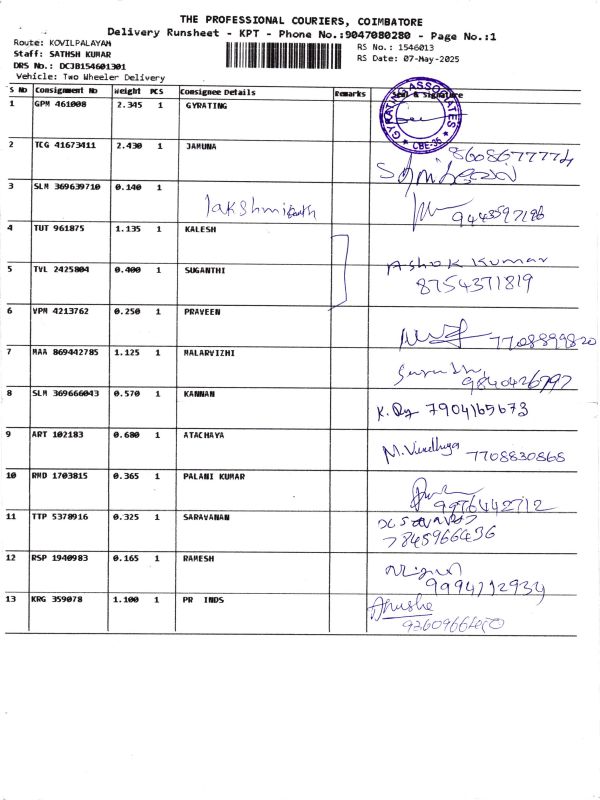 THE PROFESSIONAL COURIERS, COIMBATORE
Delivery Runsheet - KPT - Phone No.:9047080280 - Page No.:1
Route: KOVILPALAYAM
RS No.: 1546013
Staff: SATHSH KUMAR
RS Date: 07-May-2025
DRS No.: DCJB154601301
Vehicle: Two Wheeler Delivery
S No Consignment No Weight PCS Consignee Details Remarks Seal & Signature
1 GPM 461008 2.345 1 GYRATING
GYRATING ASSOCIATES
CBE-35
2 TCG 41673411 2.430 1 JAMUNA
8608677774
3 SLM 369639710 0.140 1
9443597186
4 TUT 961875 1.135 1 KALESH
Ashok Kumar
5 TVL 2425804 0.400 1 SUGANTHI
8754371819
6 VPM 4213762 0.250 1 PRAVEEN
7708899820
7 MAA 869442785 1.125 1 MALARVIZHI
9840426797
8 SLM 369666043 0.570 1 KANNAN
7904165673
9 ART 102183 0.680 1 ATACHAYA
7708830868
10 RMD 1703815 0.365 1 PALANI KUMAR
9976442712
11 TTP 5378916 0.325 1 SARAVANAN
7845966436
12 RSP 1940983 0.165 1 RAMESH
9994712934
13 KRG 359078 1.100 1 PR INDS
Anusha